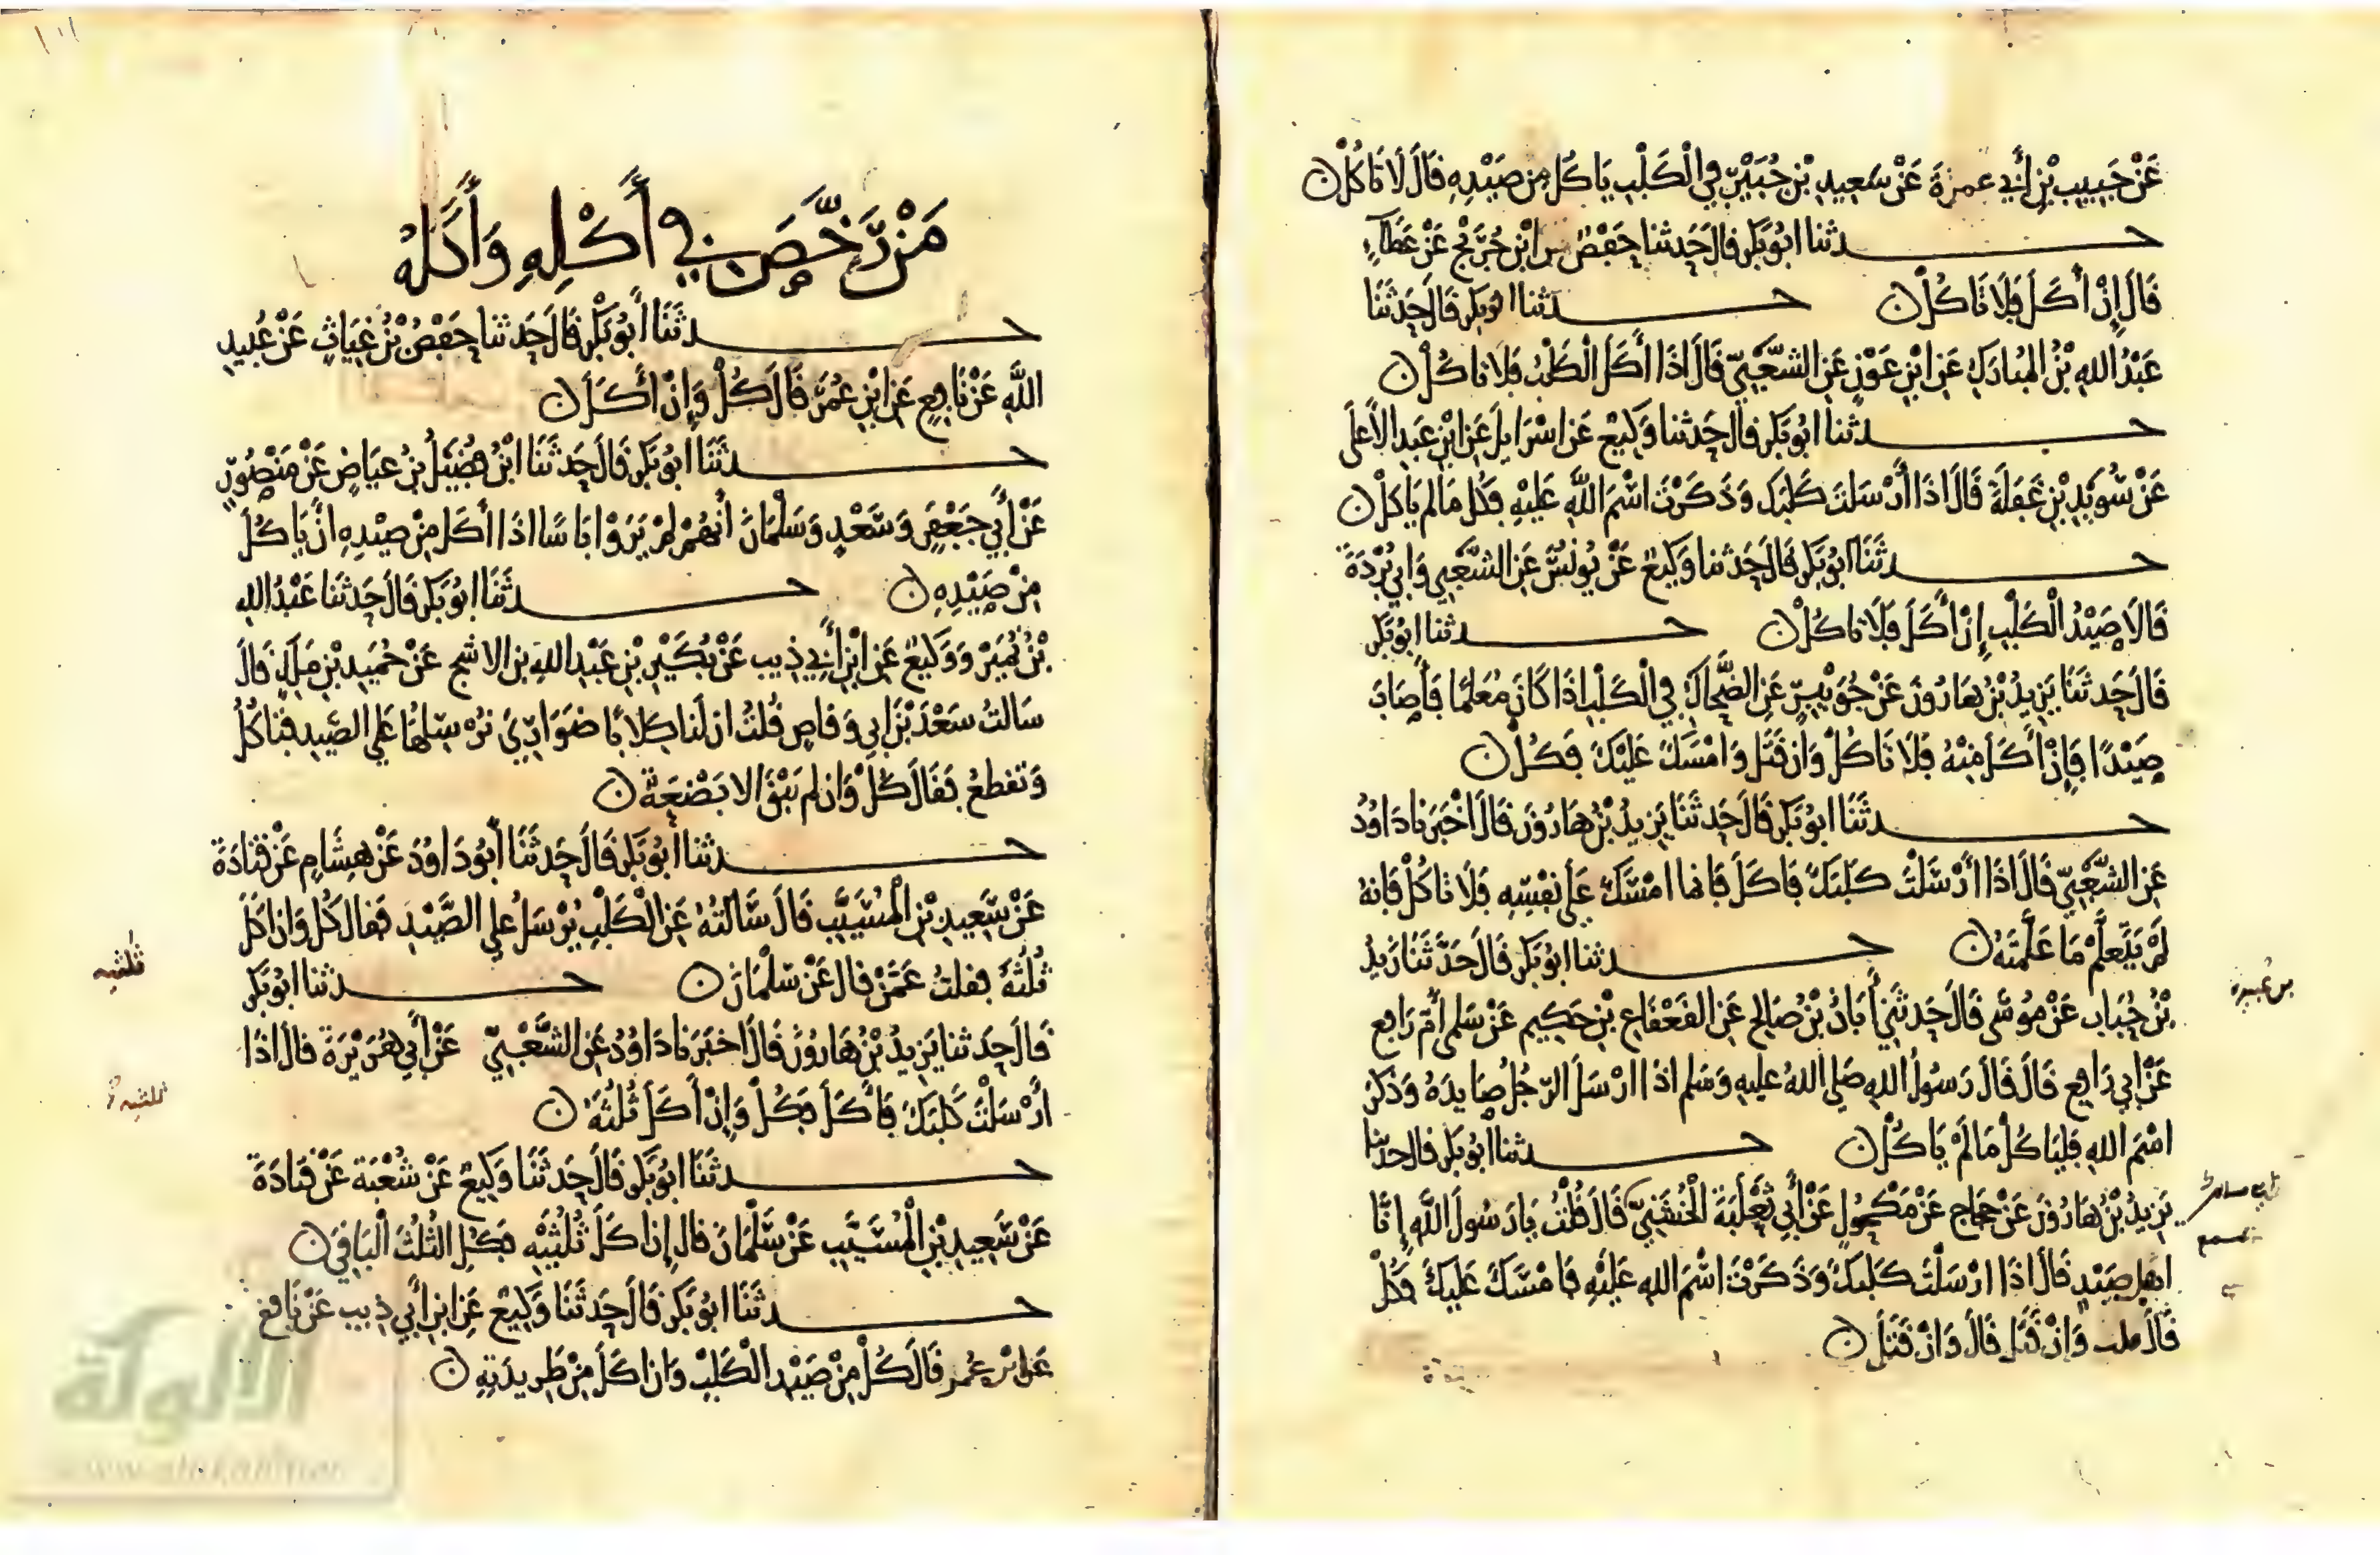 عَنْ حَبِيبِ بْنِ أَبِي عَمْرَةَ عَنْ سَعِيدِ بْنِ جُبَيْرٍ فِي الْكَلْبِ يَاكُلُ مِنْ صَيْدِهِ قَالَ لَا تَاكُلْ ن
حـدثنا ابُو بَكرٍ قالَ حَدثنا حَفْصٌ عن ابْنِ جُرَيْجٍ عَنْ عَطَاءٍ
قَالَ إِنْ أَكَلَ فَلَا تَاكُلْ ن حـدثنا ابُو بَكرٍ قَالَ حَدثَنَا
عَبْدُ اللهِ بْنُ المُبَارَكِ عَنِ ابْنِ عَوْنٍ عَنِ الشَّعْبِيِّ قَالَ اذَا أَكَلَ الْكَلْبُ فَلَا تاكُلْ ن
حـدثنا ابُو بَكرٍ قالَ حَدثنا وَكِيعٌ عَن اسْرَايِلَ عَنِ ابْنِ عَبدِ الأَعلَى
عَنْ سُوَيْدِ بْنِ غَفَلَةَ قَالَ اذَا أَرْسَلتَ كَلبَك وَذَكَرْتَ اسْمَ اللهِ عَلَيْهِ فكُل مَا لم يَاكلْ ن
حـدثَنَا ابُو بَكرٍ قَالَ حَدثنا وَكِيعٌ عَنْ يُونُسَ عَنِ الشَّعْبِي وَابِي بُرْدَةَ
قَالَا صَيْدُ الْكَلْبِ إِنْ أَكَلَ فَلَا تاكُلْ ن حـدثنا ابُو بَكر
قَالَ حَدثَنَا يَزِيدُ بْنُ هَارُونَ عَنْ جُوَيْبِرٍ عَنِ الضَّحَّاكِ فِي الْكَلْبِ اذَا كَانَ مُعَلمًا فَأَصَابَ
صَيْدًا فَإِنْ أَكَلَ مِنْهُ فَلَا تَاكُلْ وَإِنْ قَتَلَ وَامْسَكَ عَلَيْكَ فَكُلْ ن
حـدثَنَا ابُو بَكرٍ قَالَ حَدثَنَا يَزِيدُ بْنُ هَارُونَ قَالَ اخْبَرَنا دَاوُدُ
عَنِ الشَّعْبِيِّ قَالَ اذَا أَرْسَلْتَ كَلبَكَ فَاكَلَ فَانما امْسَكَ عَلَى نَفْسِهِ فَلَا تَاكُلْ فَانهُ
لَمْ يَتَعلَّمْ مَا عَلَّمْتَهُ ن حـدثنا ابُو بَكرٍ قَالَ حَدَّثَنَا زَيدُ
بْنُ حُبَابٍ عَنْ مُوسَى قَالَ حَدثَنِي أَبَانُ بْنُ صَالِحٍ عَنِ القَعْقَاعِ بْنِ حَكِيمٍ عَنْ سَلمى أُمِّ رَافِعٍ
عَنْ ابِي رَافِعٍ قَالَ قَالَ رَسُولُ اللهِ صَلى اللهُ عليهِ وَسَلم اذَا ارْسَلَ الرّجُلُ صَايدَهُ وَذَكَرَ
اسْمَ اللهِ فَليَاكُلْ مَا لَمْ يَاكُلْ ن حـدثنا ابُو بَكرٍ قالَ حدثنا
يَزِيدُ بْنُ هَارُونَ عَنْ حَجاجٍ عَنْ مَكْحُولٍ عَنْ أَبِي ثَعْلَبَةَ الْخُشَنِيِّ قَالَ قُلْتُ يَا رَسُولَ اللهِ إِنَّا
اهل صَيْدٍ قَالَ اذَا ارْسَلْتَ كَلبَكَ وَذَكَرْتَ اسْمَ اللهِ عَلَيْهِ فَامْسَكَ عَلَيكَ فَكُلْ
قَالَ قلت وَإِنْ قَتَلَ قَالَ وَانْ قَتَلَ ن
بن عبيدة
مَنْ رَخَّصَ فِي أَكْلِهِ وَأَكَلَهُ
حـدثَنَا أَبُو بَكْرٍ قَالَ حَدثنا حَفْصُ بْنُ غِيَاثٍ عَنْ عُبيدِ
اللهِ عَنْ نَافِعٍ عَنِ ابْنِ عُمَرَ قَالَ كُلْ وَإِنْ أَكَلَ ن
حـدثَنَا ابُو بَكرٍ قَالَ حَدثَنَا ابْنُ فُضَيْلُ بنُ عيَاضٍ عَنْ مَنْصُورٍ
عَنْ أَبِي جَعْفَرٍ وَسَعْدٍ وَسَلْمَانَ أنهُمْ لمْ يَرَوْا بَاسًا اذَا أكَلَ مِنْ صَيْدِهِ انْ يَاكُلَ
مِنْ صَيْدِهِ ن حـدثَنَا ابُو بَكرٍ قَالَ حَدثَنَا عَبْدُ اللهِ
بْنُ نُمَيْرٍ وَوَكِيعٌ عَنِ ابْنِ أَبِي ذِيبٍ عَنْ بُكَيْرِ بْنِ عَبْدِ اللهِ بنِ الاشجِ عَنْ حُمَيدِ بْنِ مَالكٍ قَالَ
سَالتُ سَعْدَ بْنَ ابِي وَقاصٍ قُلتُ ان لَنا كِلَابًا ضَوَارِيَ نُرْسِلُهَا عَلى الصَّيدِ فَتاكُلُ
وَتقطعُ فَقَالَ كُلْ وَان لم يَبْقَ الا بَضْعَةٌ ن
حـدثنا ابُو بَكرٍ قَالَ حَدثَنَا أَبُو دَاوُدَ عَنْ هِشَامٍ عَنْ قتَادَةَ
عَنْ سَعِيدِ بْنِ الْمُسَيَّبِ قَالَ سَالتُهُ عَنِ الْكَلْبِ يُرْسَلُ عَلى الصَّيْدِ فقال كُلْ وَان اكَلَ
ثُلُثَهُ فقلتُ عَمَّنْ قَالَ عَنْ سَلْمَانَ ن حـدثنا ابُو بَكرٍ
قَالَ حَدثنا يَزِيدُ بْنُ هَارُونَ قَالَ اخبَرَنا دَاوُدُ عَنِ الشَّعْبِيِّ عَنْ أَبِي هُرَيْرَةَ قال اذَا
ارْسَلْتَ كَلبَكَ فَأَكَلَ فَكُلْ وَإِنْ أَكَلَ ثُلُثَهُ ن
حـدثَنَا ابُو بَكرٍ قَالَ حَدثَنَا وَكِيعٌ عَنْ شُعْبَة عَنْ قتَادَةَ
عَنْ سَعِيدِ بْنِ الْمُسَيَّبِ عَنْ سَلْمَانَ قال إِن اكَلَ ثُلُثَيْهِ فكُلِ الثُّلُثَ الْبَاقِيَ ن
حـدثَنَا ابُو بَكرٍ قَالَ حَدثَنَا وَكِيعٌ عَنِ ابنِ أَبِي ذِيبٍ عَنْ نَافِعٍ
عَنِ ابْنِ عُمر قَالَ كُلْ مِنْ صَيْدِ الْكَلبِ وَان اكَلَ مِنْ طَرِيدَتِهِ ن
ثلثيه
ثلثيه
الألوكة
www.alukah.net